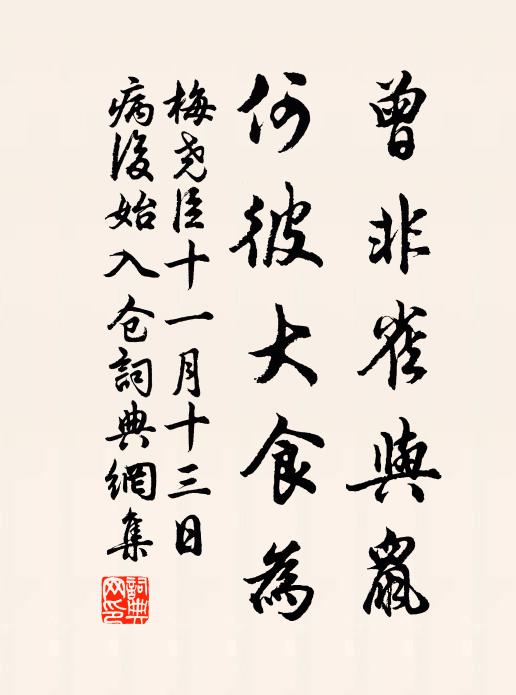 曾非雀與鼠
何彼大食為
梅尧臣十一月十三日
病後始入仓詞典網集
詞典
网印